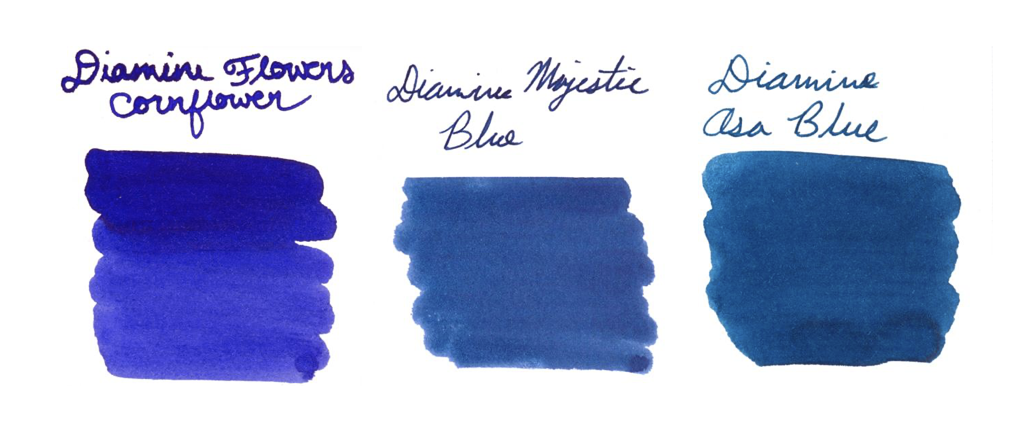 Diamine Flowers
Cornflower
Diamine Majestic
Blue
Diamine
Asa Blue